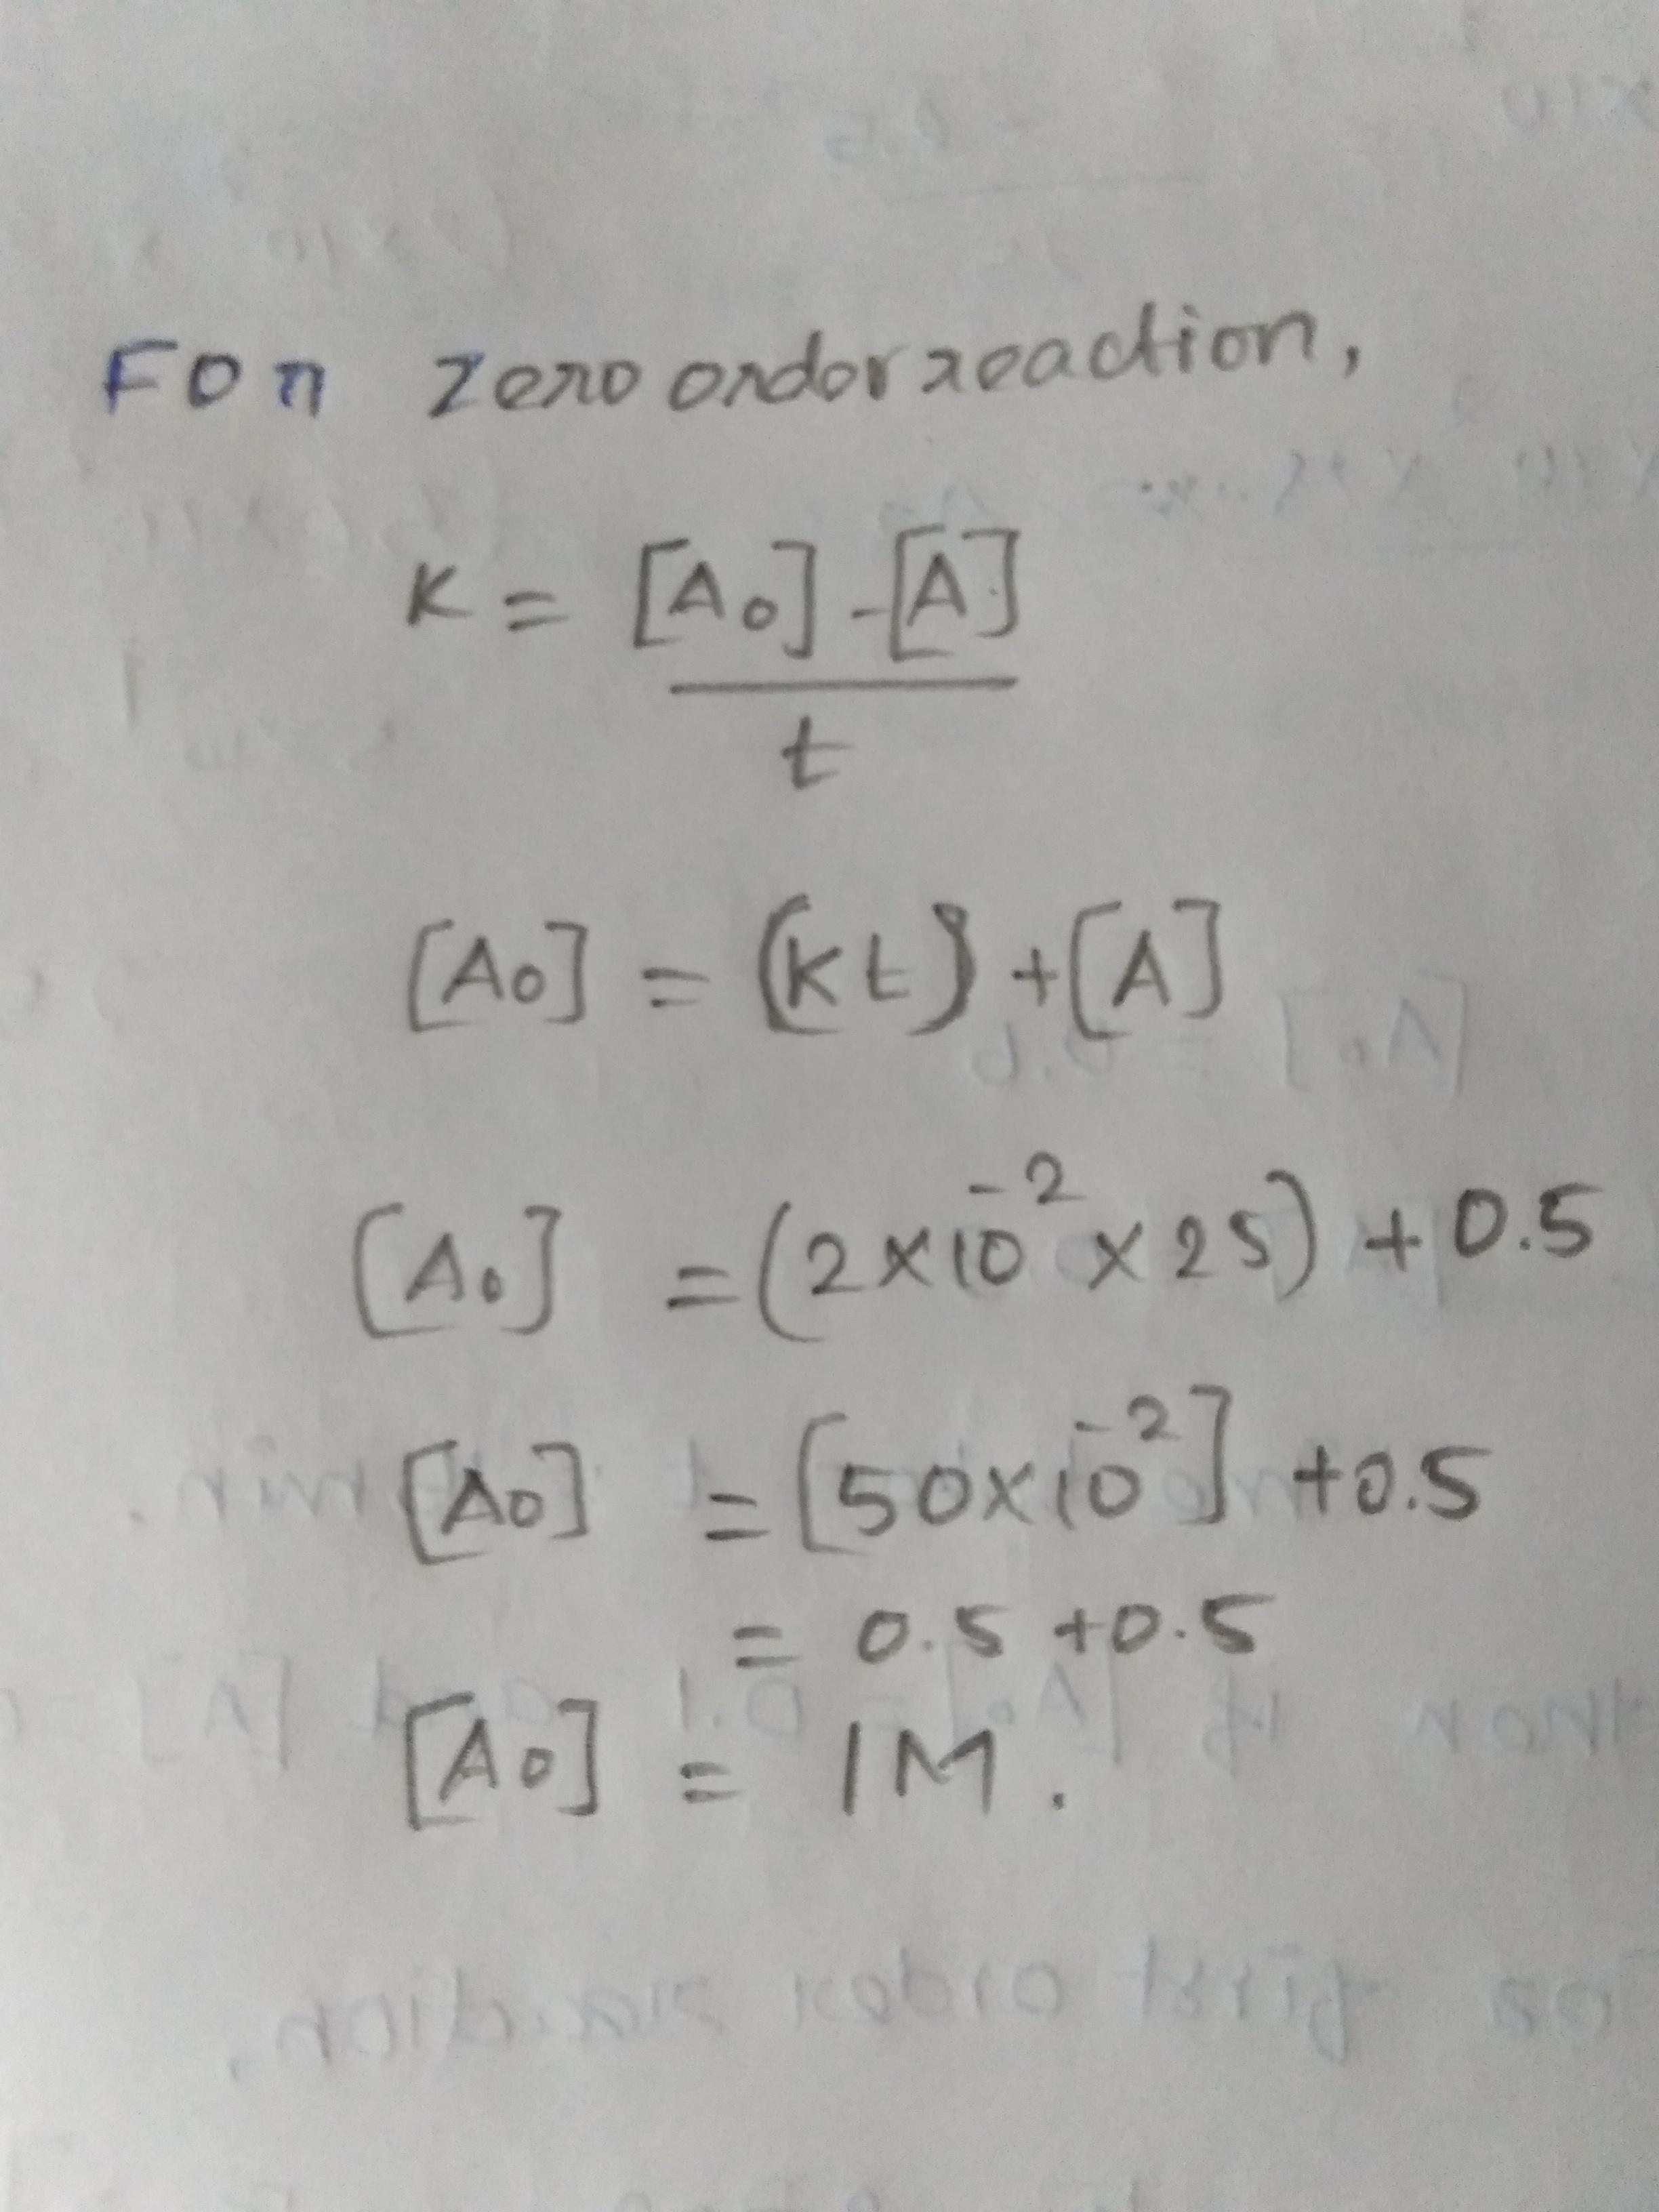 For zero order reaction,
K = [A₀] - [A]
t
[A₀] = (Kt) + [A]
[A₀] = (2×10⁻² × 25) + 0.5
[A₀] = [50×10⁻²] + 0.5
= 0.5 + 0.5
[A₀] = 1M.